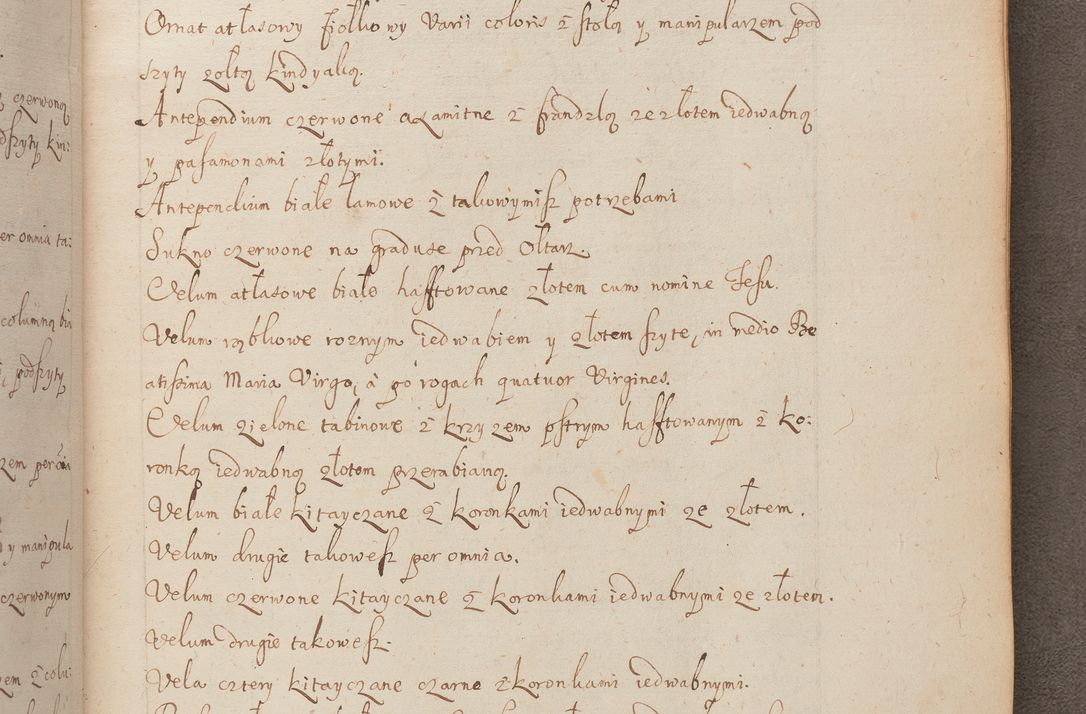 Ornat atłasowy fiołkowy varii coloris z stołą y manipularzem pod
szyty żołtą kindyaką.
Antependium czerwone axamitne z frandzlą ze złotem iedwabną
y pasamonami złotymi.
Antependium białe łamowe z takowymisz potrzebami
Sukno czerwone na graduse przed Ołtarz.
Velum atłasowe białe hafftowane złotem cum nomine Jesu.
Velum rąbkowe roznym iedwabiem y złotem szyte, in medio Be
atissima Maria Virgo, à po rogach quatuor Virgines.
Velum zielone tabinowe z krzyzem pstrym hafftowanym z ko:
ronką iedwabną złotem przerabianą.
Velum białe kitayczane z koronkami iedwabnymi ze złotem.
Velum drugie takowesz per omnia.
Velum czerwone kitayczane z koronkami iedwabnymi ze złotem.
Velum drugie takowesz.
Vela cztery kitayczane czarne z koronkami iedwabnymi.
czerwoną
dszyty kin:
per omnia ta:
columną bia
podszyty
zem per oia
d y manipula
czerwonym
zem z colu: